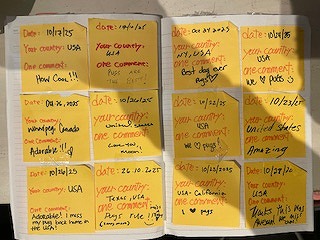 Date: 10/17/25
Your country: USA
One comment:
How Cool!!!
date:
your country:
USA
one comment:
PUGS ARE
date: Oct 24 2025
your country:
NY, USA
one comment:
Best day ever
pugs
date:
your country:
USA
one comment:
we ♡ pugs
Date: Oct 26, 2025
Your country:
Winnipeg Canada
One comment:
Adorable!!!
date: 10/26/25
your country:
United States
one comment:
Love you,
date: 10/22/25
your country:
USA
one comment:
we ♡ pugs!
date: 10/23/25
your country:
United States
one comment:
Amazing
Date: 10/26/25
Your country: USA
One comment:
Adorable! I miss
my pugs back home in
the USA!
date: 26.10.2025
your country:
Texas, USA
one comment:
Pugs rule !!!
date:
your country:
USA - California
one comment:
I ♡ pugs
date:
your country:
USA
one comment:
this was